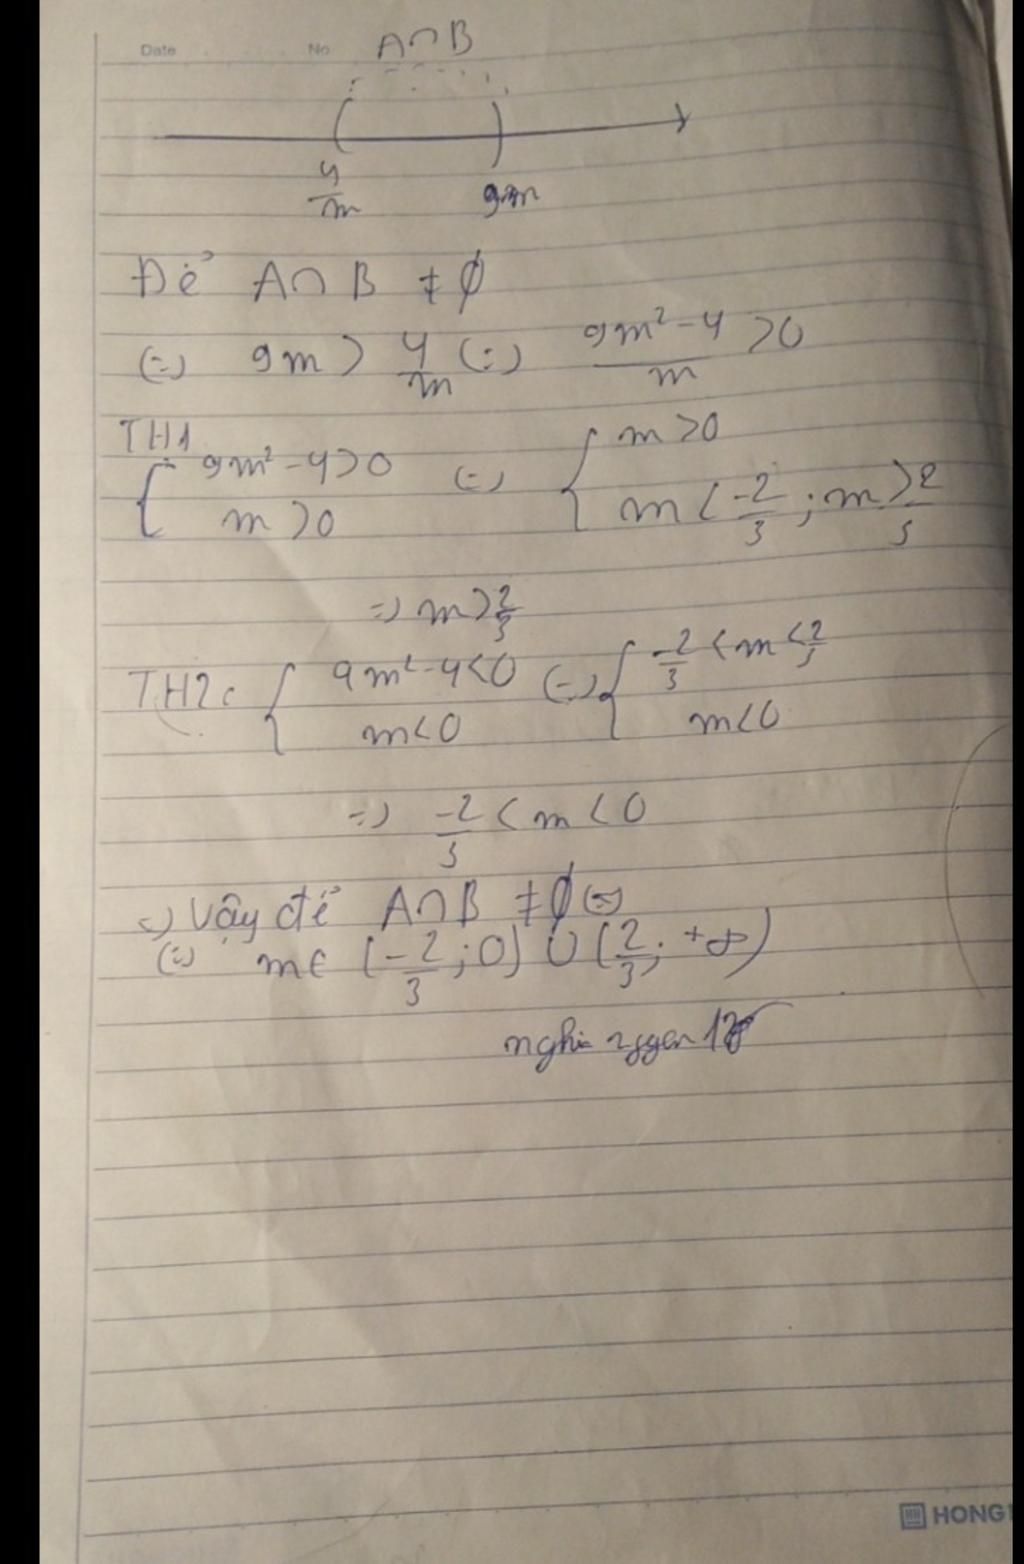 Date No A∩B
( )
4/m 9m
Để A∩B ≠ ∅
(=) 9m > 4/m (=) (9m² - 4)/m > 0
TH1
{ 9m² - 4 > 0 (=) { m > 0
m > 0 m < -2/3 ; m > 2/3
=) m > 2/3
TH2: { 9m² - 4 < 0 (=) { -2/3 < m < 2/3
m < 0 m < 0
=) -2/3 < m < 0
=) Vậy để A∩B ≠ ∅ (=)
(=) m ∈ (-2/3 ; 0) ∪ (2/3 ; +∞)
HONG